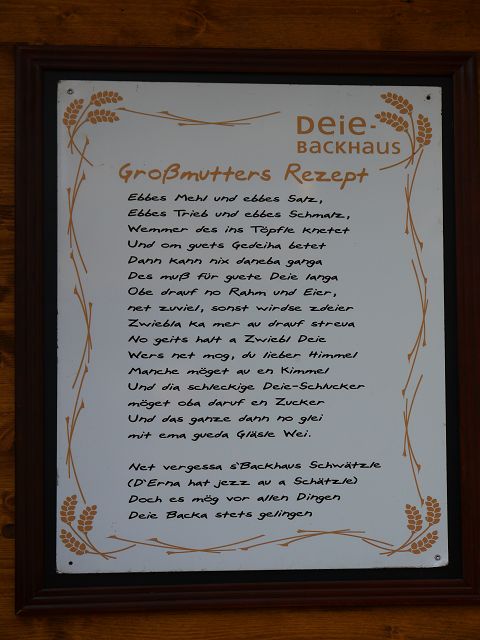 Deie-
BACKHAUS
Großmutters Rezept
Ebbes Mehl und ebbes Salz,
Ebbes Trieb und ebbes Schmalz,
Wemmer des ins Töpfle knetet
Und om guets Gedeiha betet
Dann kann nix daneba ganga
Des muß für guete Deie langa
Obe drauf no Rahm und Eier,
net zuviel, sonst wirdse zdeier
Zwiebla ka mer au drauf streua
No geits halt a Zwiebl Deie
Wers net mog, du lieber Himmel
Manche möget au en Kimmel
Und dia schleckige Deie-Schlucker
möget oba daruf en Zucker
Und das ganze dann no glei
mit ema gueda Gläsle Wei.
Net vergessa s'Backhaus Schwätzle
(D'Erna hat jezz au a Schätzle)
Doch es mög vor allen Dingen
Deie Backa stets gelingen